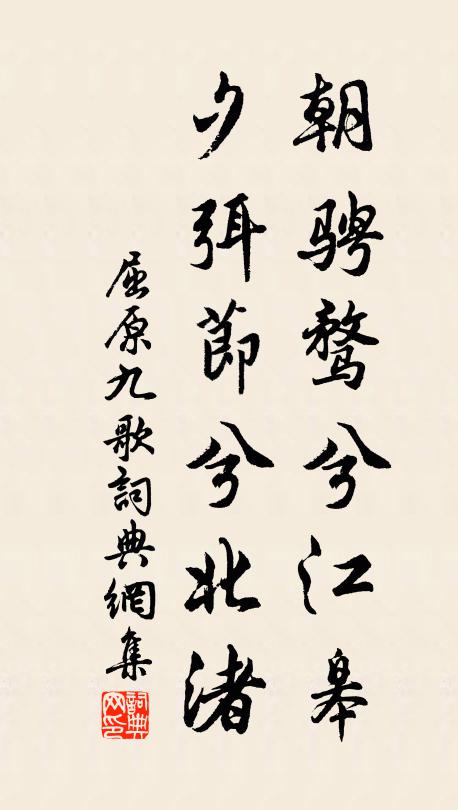 朝骋鹜兮江皋
夕弭節兮北渚
屈原九歌詞典網集
詞典网印